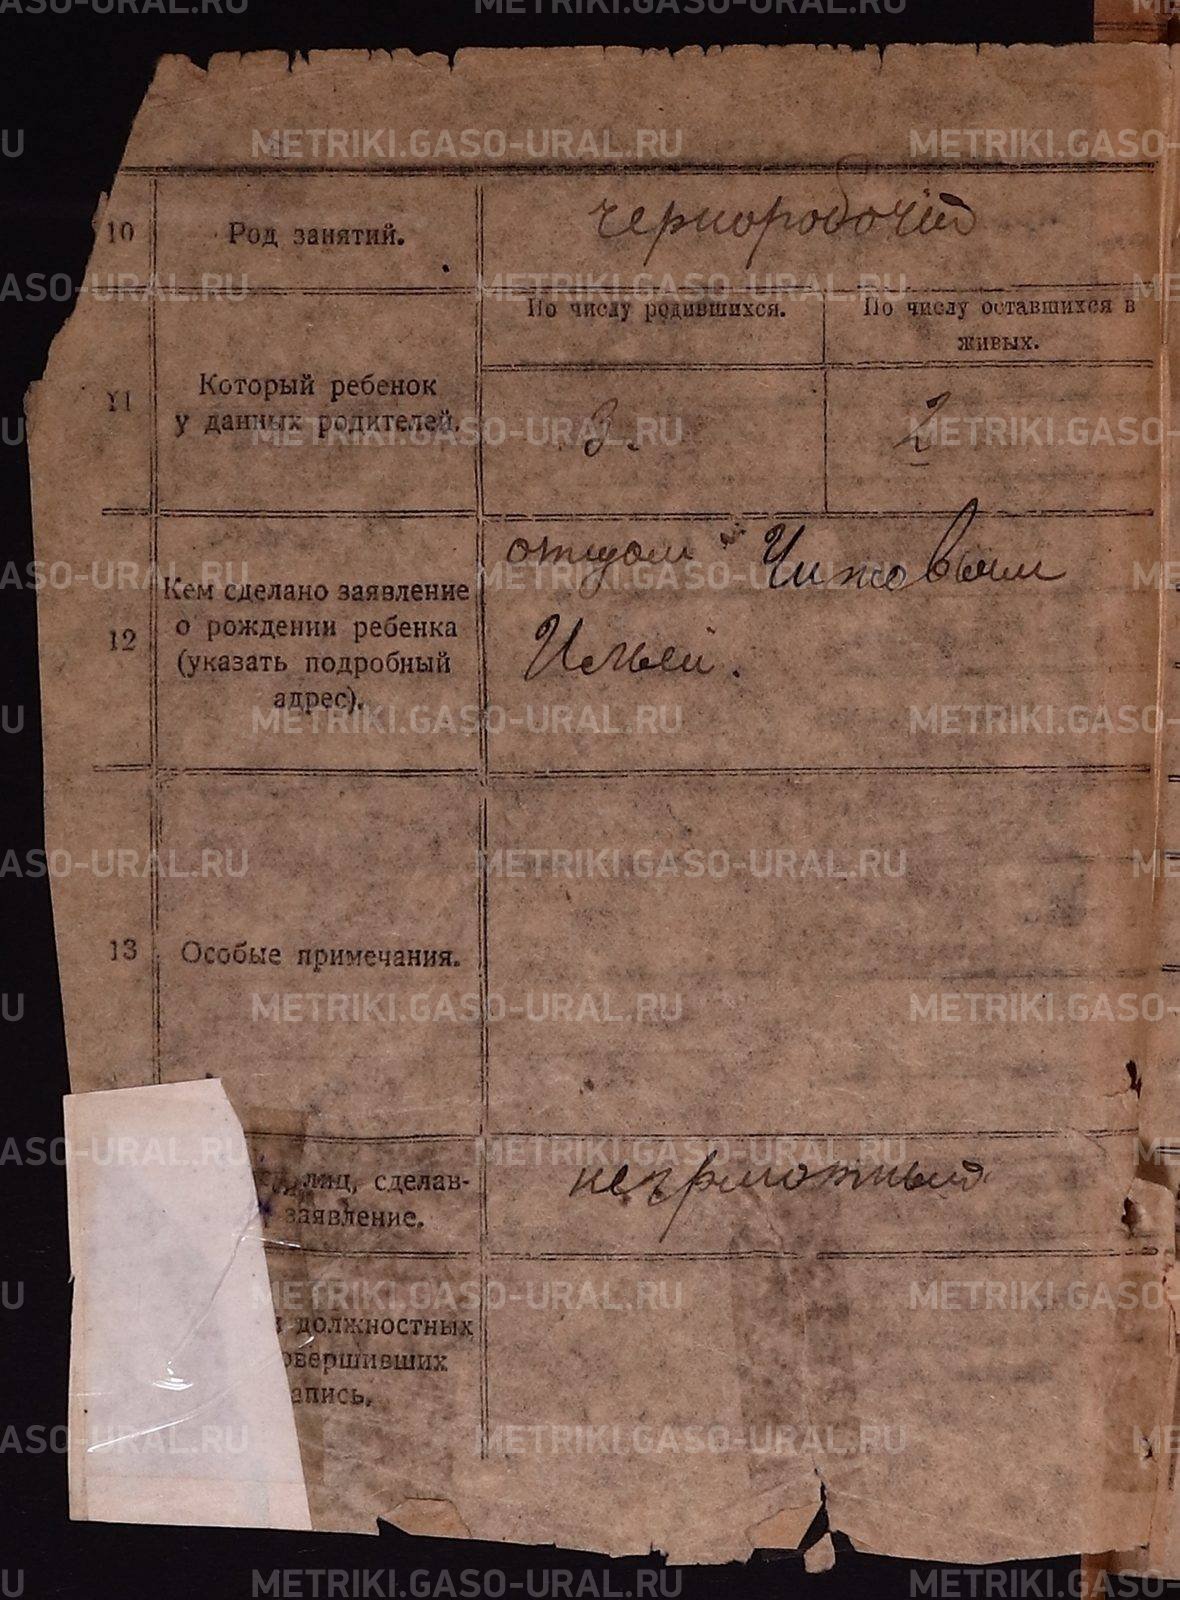 10
Род занятий.
чернорабочий
11
Который ребенок
у данных родителей.
По числу родившихся.
3.
По числу оставшихся в
живых.
2
12
Кем сделано заявление
о рождении ребенка
(указать подробный
адрес).
отцом Чижовым
Ильей.
13
Особые примечания.
лиц, сделав-
заявление.
неграмотный
должностных
овершивших
апись.
METRIKI.GASO-URAL.RU